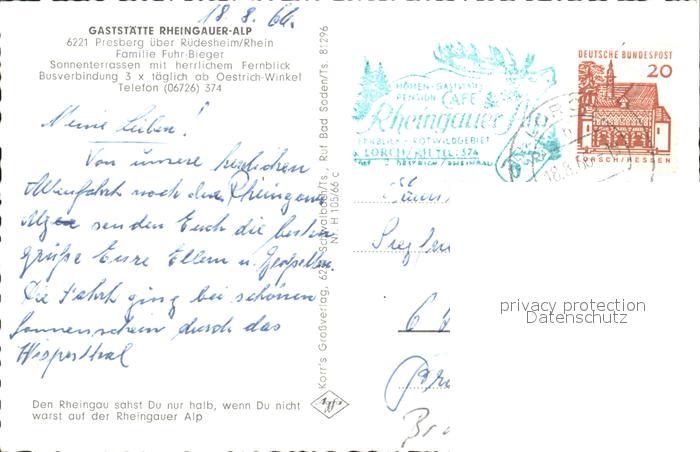 18. 8. 66.
GASTSTÄTTE RHEINGAUER-ALP
6221 Presberg über Rüdesheim/Rhein
Familie Fuhr-Bieger
Sonnenterrassen mit herrlichem Fernblick
Busverbindung 3 x täglich ab Oestrich-Winkel
Telefon (06726) 374
Meine Lieben!
Von unserer herzlichen
nach der Rheingauer
Alp senden Euch die besten
Grüße Eure Eltern u. 
Die Fahrt ging bei schönen
Sonnenschein durch das
Wisperthal
Den Rheingau sahst Du nur halb, wenn Du nicht
warst auf der Rheingauer Alp
Korr's Großverlag, Schwalbach/Ts., Ruf Bad Soden/Ts. 81296
Nr. H 105/66 c
HÖHEN-GASTSTÄTTE
PENSION CAFE
Rheingauer Alp
FERNBLICK - ROTWILDGEBIET
LORCH/RH TEL: 374
OESTRICH/RHEINGAU
DEUTSCHE BUNDESPOST
20
LORSCH/HESSEN
18.8.66
privacy protection
Datenschutz